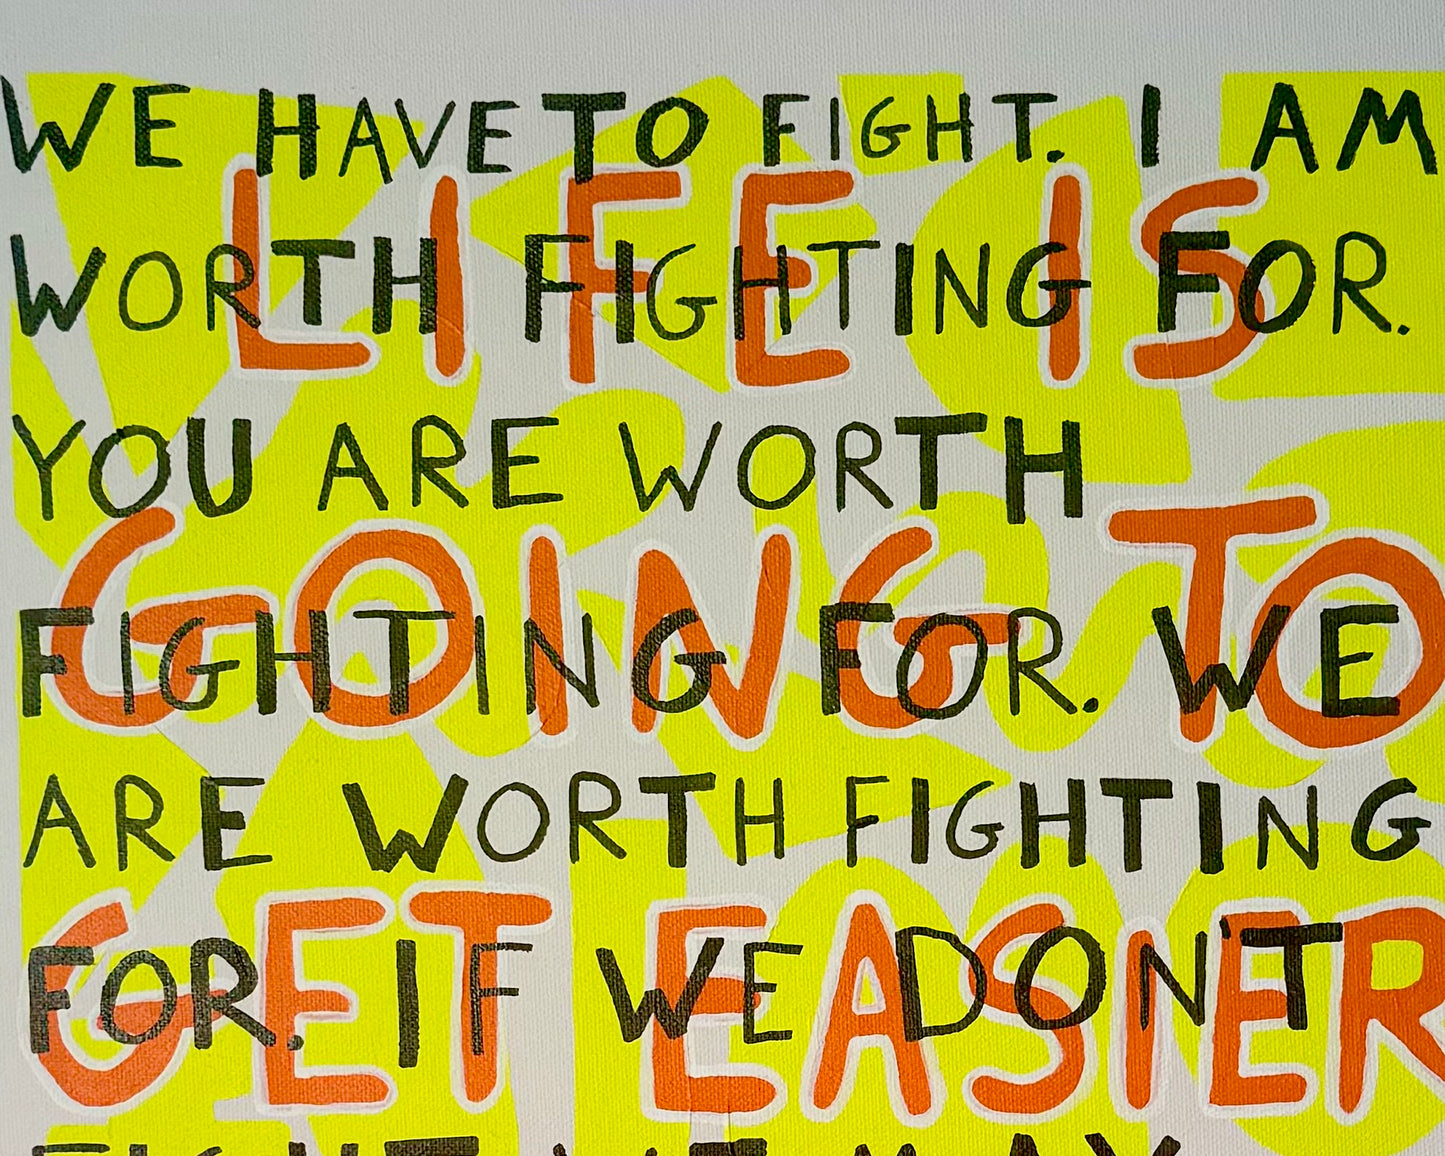 WE HAVE TO FIGHT. I AM
LIFE IS
WORTH FIGHTING FOR.
YOU ARE WORTH
GOING TO
FIGHTING FOR. WE
ARE WORTH FIGHTING
GET EASIER
FOR. IF WE DON'T
FIGHT WE MAY